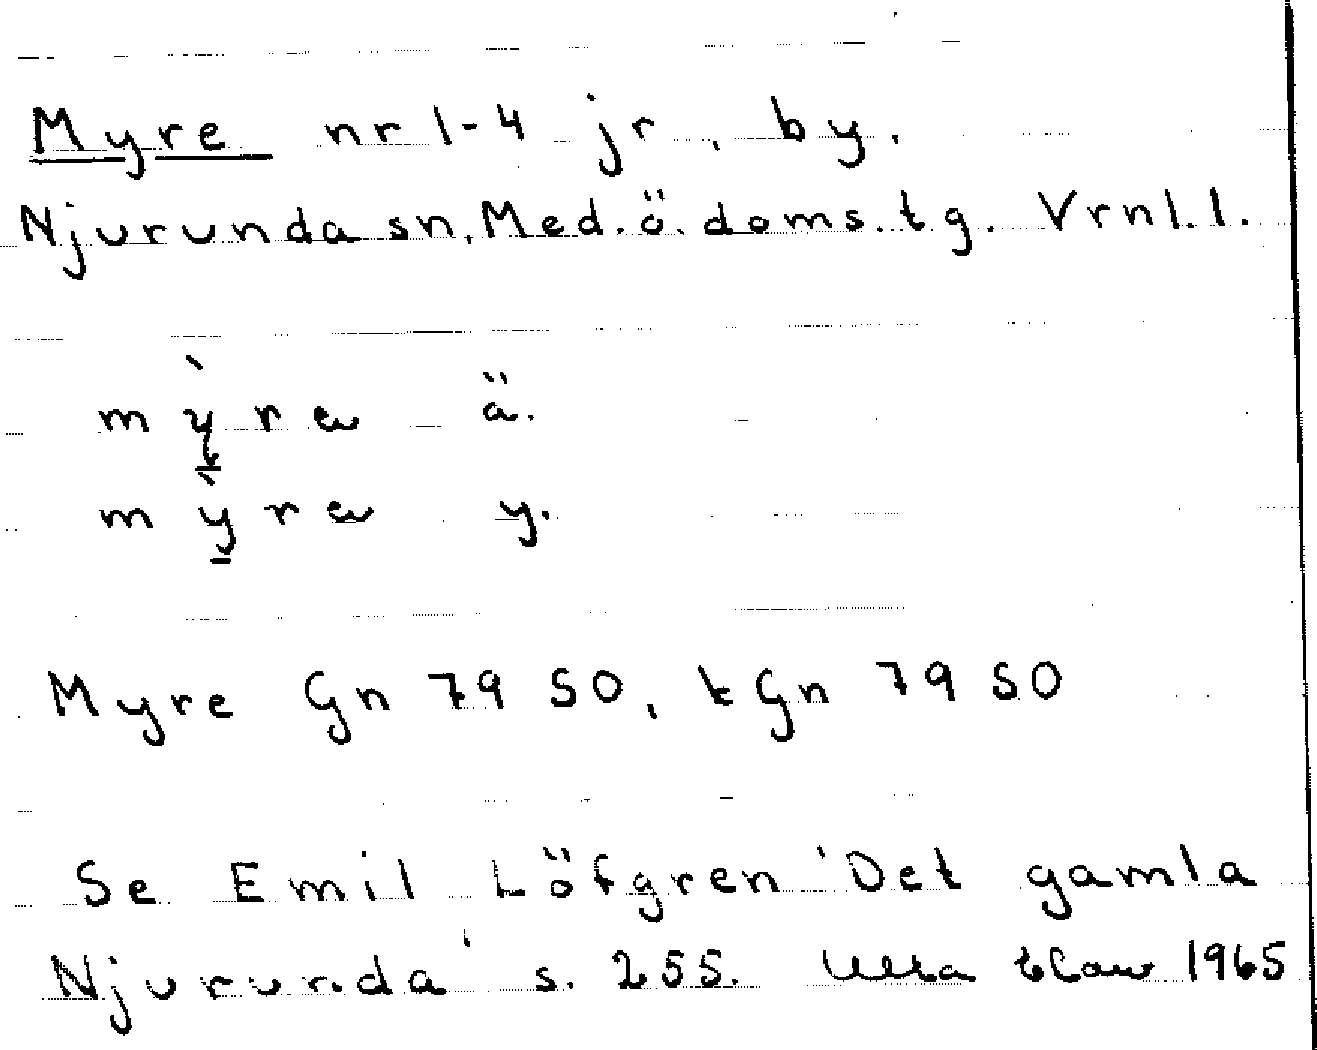 Myre nr 1-4 jr, by.
Njurunda sn. Med. ö. doms. tg. Vrnl. l.
ä.
y.
Myre Gn 79 SO, t Gn 79 SO
Se Emil Löfgren 'Det gamla
Njurunda' s. 255. Ulla 1965